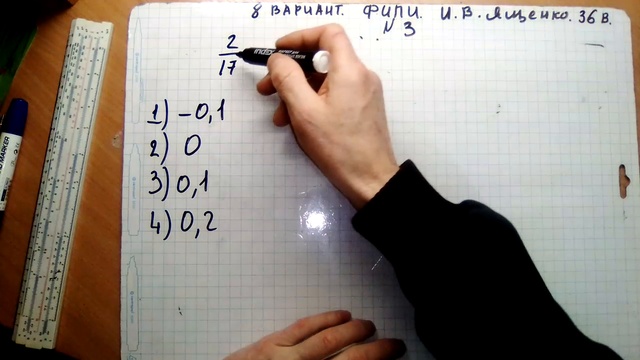 8 ВАРИАНТ. ФИПИ. И.В. Ященко. 36 В.
№ 3
2
17
1) -0,1
2) 0
3) 0,1
4) 0,2